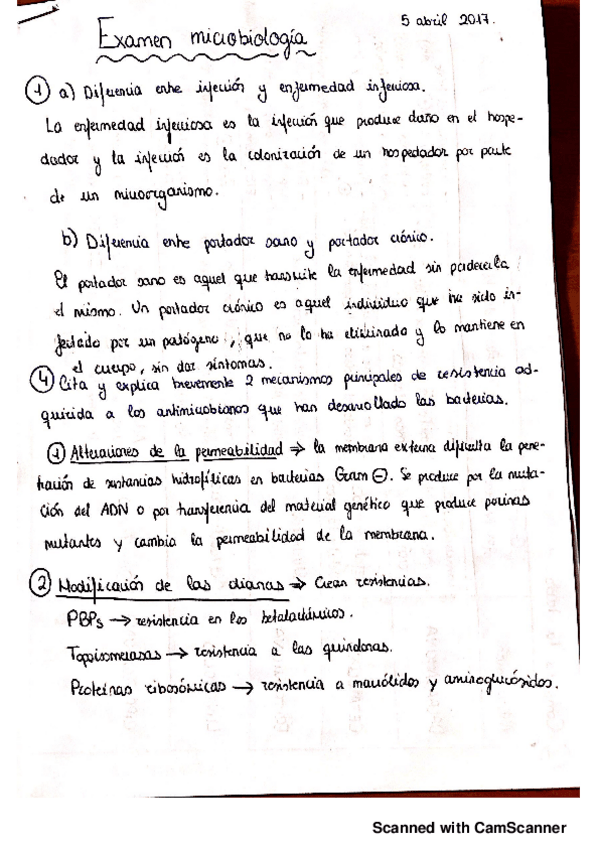 5 abril 2017.
Examen microbiología
① a) Diferencia entre infección y enfermedad infecciosa.
La enfermedad infecciosa es la infección que produce daño en el hospe-
dador y la infección es la colonización de un hospedador por parte
de un microorganismo.
b) Diferencia entre portador sano y portador crónico.
El portador sano es aquel que transmite la enfermedad sin padecerla
él mismo. Un portador crónico es aquel individuo que ha sido in-
fectado por un patógeno, que no lo ha eliminado y lo mantiene en
el cuerpo, sin dar síntomas.
④ Cita y explica brevemente 2 mecanismos principales de resistencia ad-
quirida a los antimicrobianos que han desarrollado las bacterias.
① Alteraciones de la permeabilidad ⇒ la membrana externa dificulta la pene-
tración de sustancias hidrofílicas en bacterias Gram ⊖. Se produce por la muta-
ción del ADN o por transferencia del material genético que produce porinas
mutantes y cambia la permeabilidad de la membrana.
② Modificación de las dianas ⇒ Crean resistencias.
PBPs → resistencia en los betalactámicos.
Topoisomerasas → resistencia a las quinolonas.
Proteínas ribosómicas → resistencia a macrólidos y aminoglucósidos.
Scanned with CamScanner